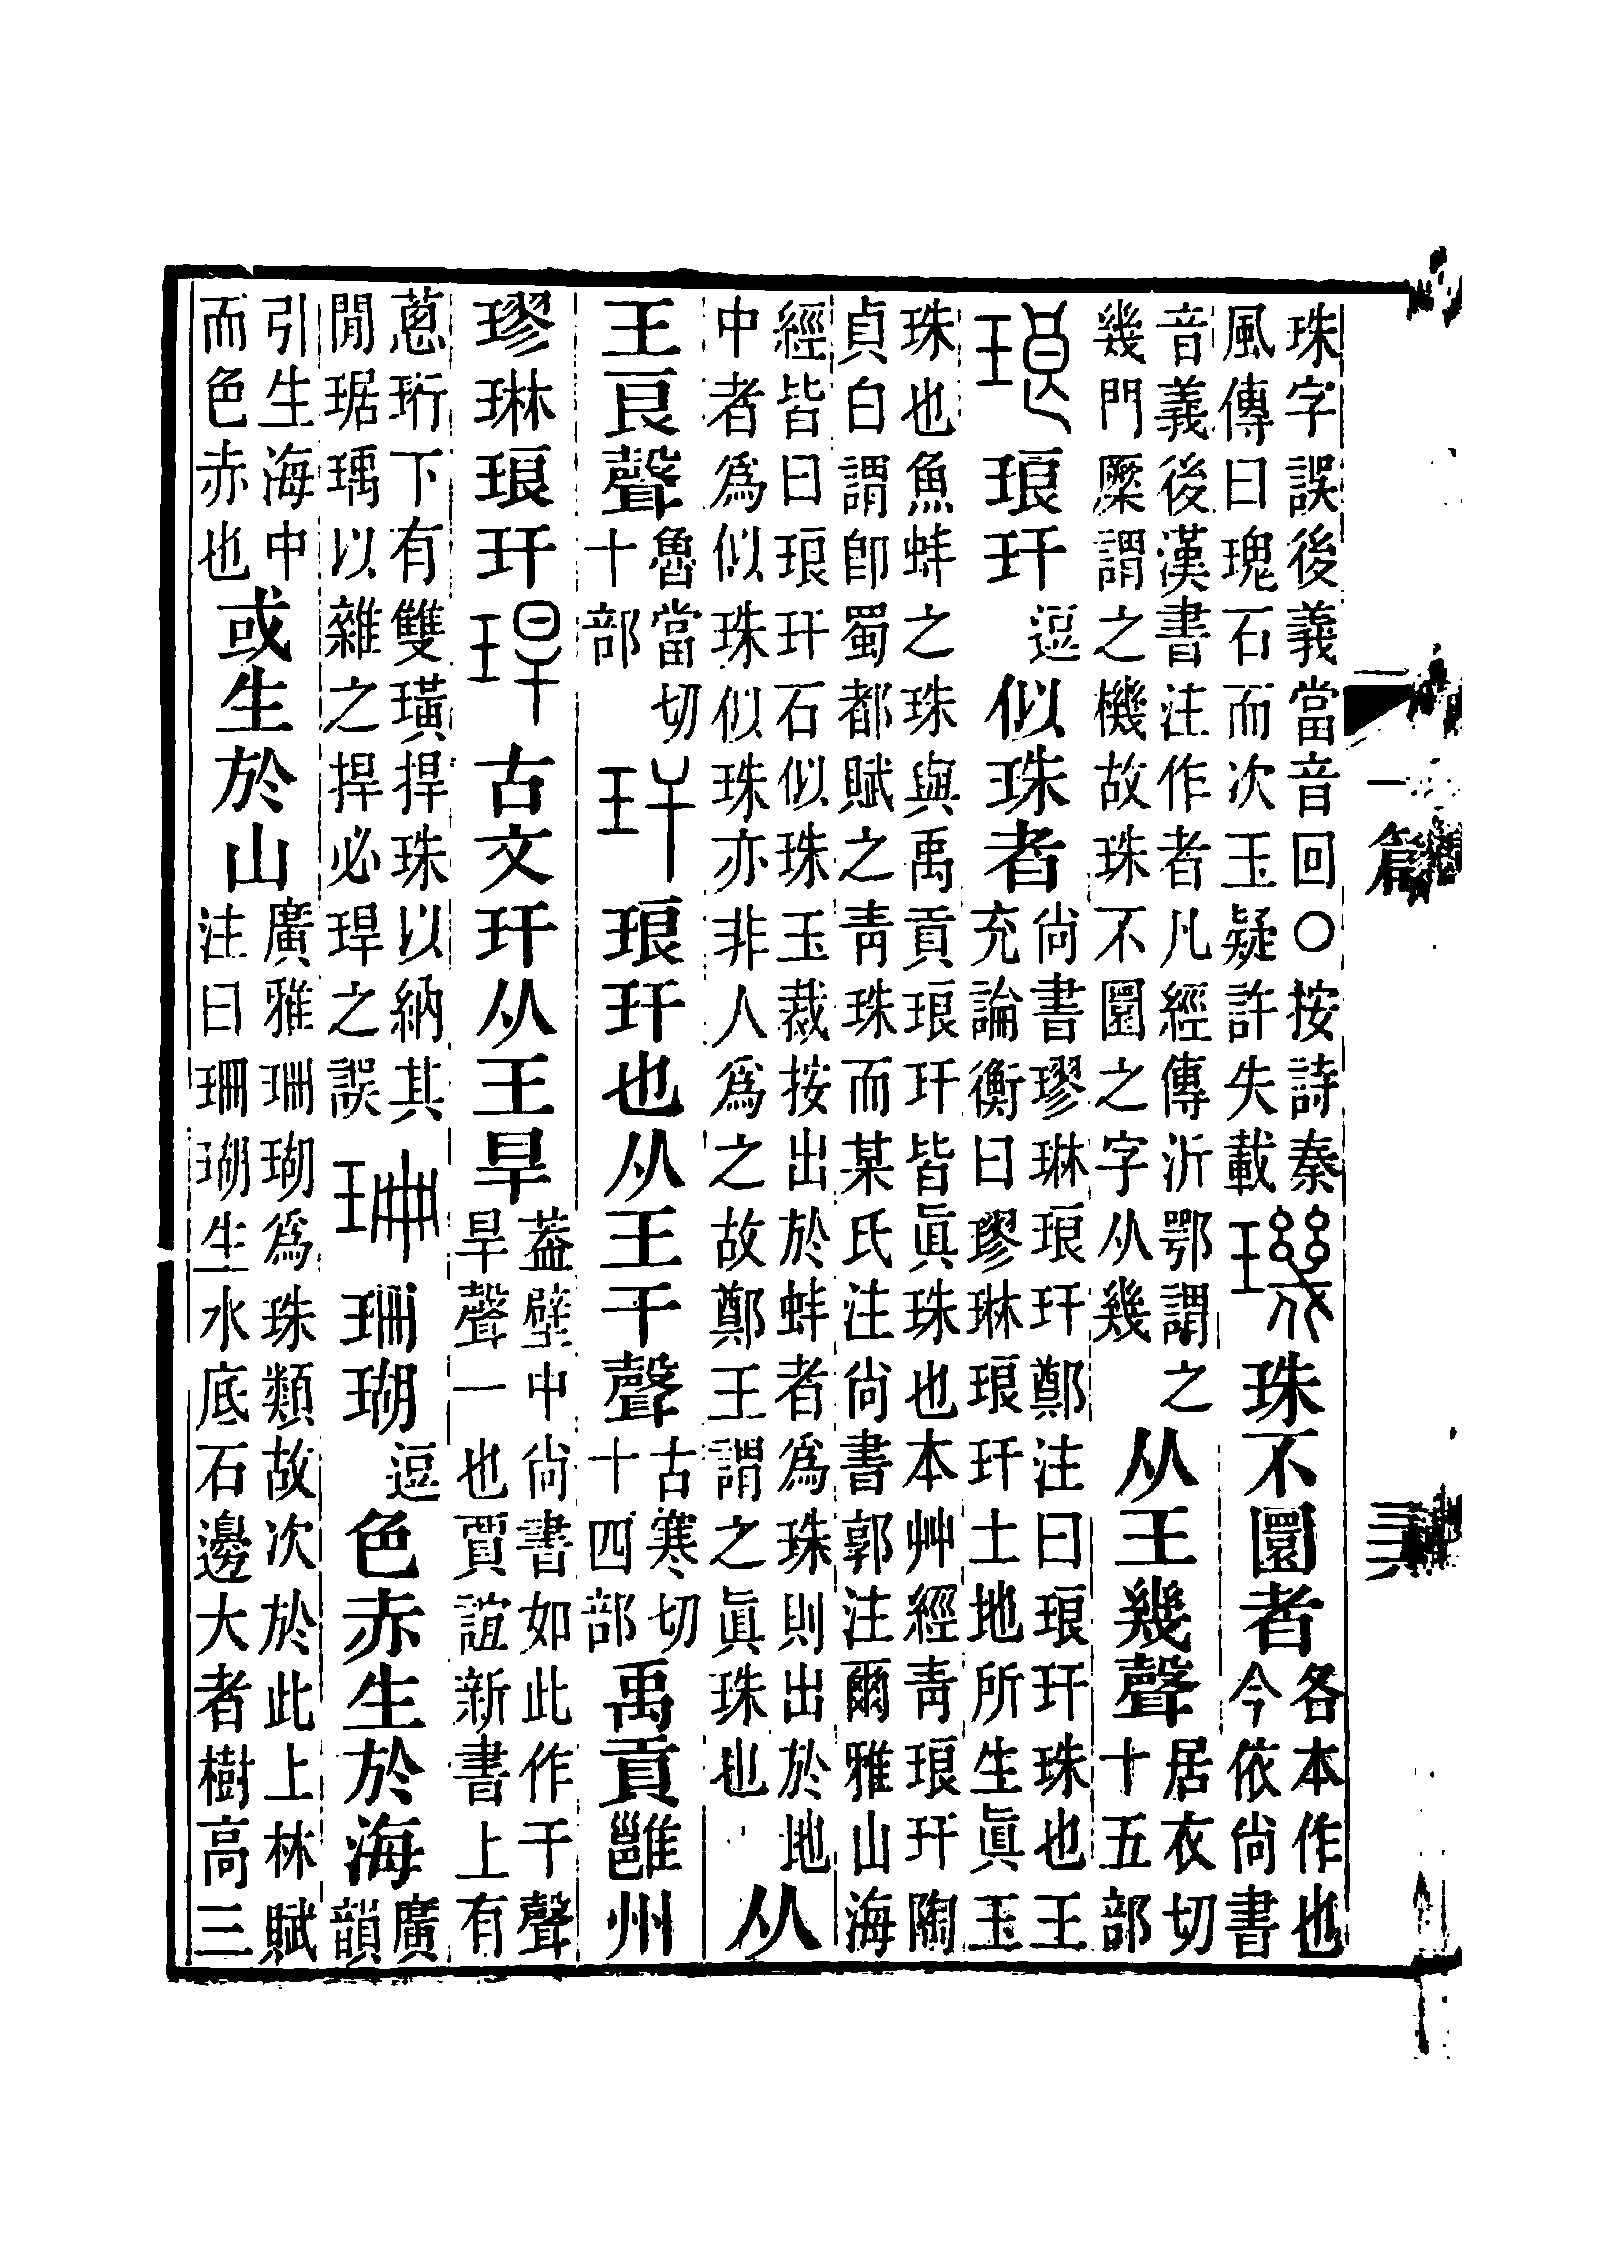 珠字誤後義當音回〇按詩秦
風傳曰瑰石而次玉疑許失載
璣珠不圜者
各本作也
今依尙書
音義後漢書注作者凡經傳沂鄂謂之
幾門橜謂之機故珠不圜之字从幾
从王幾聲
居衣切
十五部
琅琅玕
逗
似珠者
尙書璆琳琅玕鄭注曰琅玕珠也王
充論衡曰璆琳琅玕土地所生眞玉
珠也魚蚌之珠與禹貢琅玕皆眞珠也本艸經靑琅玕陶
貞白謂卽蜀都賦之靑珠而某氏注尙書郭注爾雅山海
經皆曰琅玕石似珠玉裁按出於蚌者爲珠則出於地
中者爲似珠似珠亦非人爲之故鄭王謂之眞珠也
从
王良聲
魯當切
十部
玕琅玕也从王干聲
古寒切
十四部
禹貢雝州
璆琳琅玕𤥚古文玕从王旱
葢壁中尙書如此作干聲
旱聲一也賈誼新書上有
蔥珩下有雙璜捍珠以納其
閒琚瑀以雜之捍必𤥚之誤
珊珊瑚
逗
色赤生於海
廣
韻
引生海中
而色赤也
或生於山
廣雅珊瑚爲珠類故次於此上林賦
注曰珊瑚生水底石邊大者樹高三